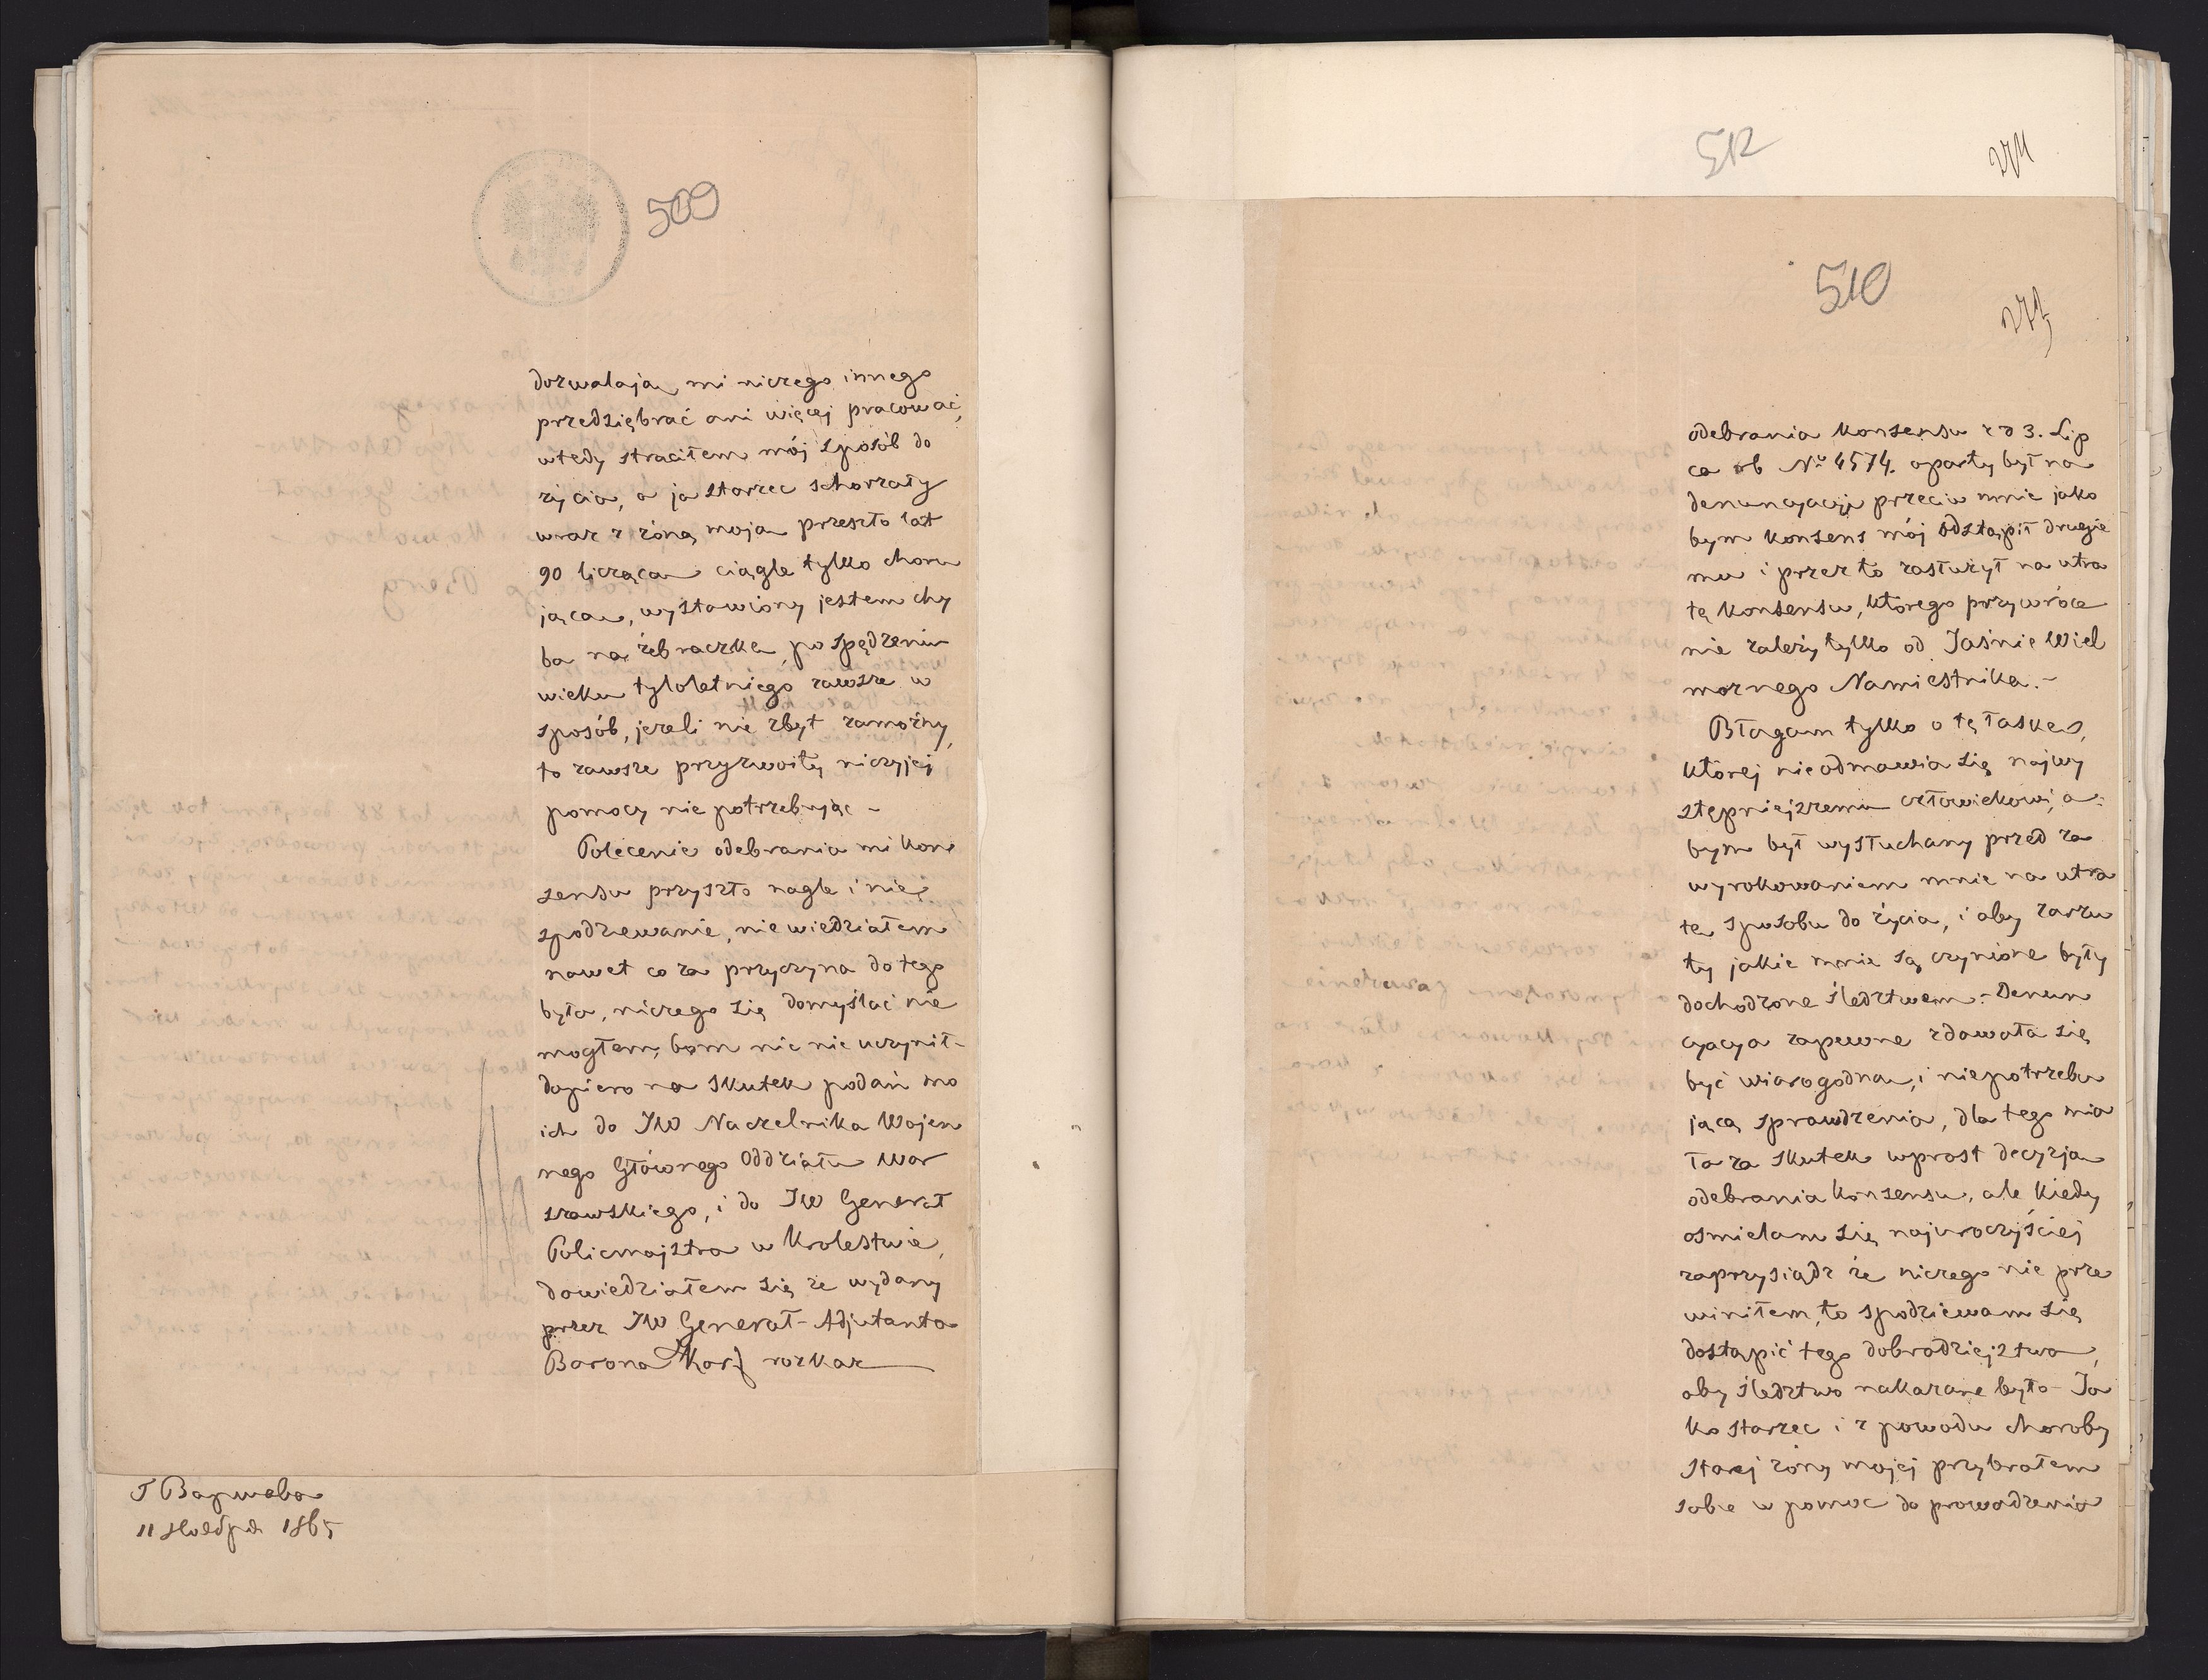 509
dozwalają mi niczego innego
przedsiębrać ani więcej pracować,
wtedy straciłem mój sposób do
życia, a ja starzec schorzały
wraz z żoną moją przeszło lat
90 liczącą ciągle tylko choru
jącą, wystawiony jestem chy
ba na żebraczkę, po spędzeniu
wieku tyloletniego zawsze w
sposób, jeżeli nie zbyt zamożny,
to zawsze przyzwoity niczyjej
pomocy nie potrzebując -
Polecenie odebrania mi kon
sensu przyszło nagle i nie
spodziewanie, nie wiedziałem
nawet co za przyczyna do tego
była, niczego się domyślać nie
mogłem, bom nic nie uczynił -
dopiero na skutek podań mo
ich do JW Naczelnika Wojen
nego Głównego Oddziału War
szawskiego, i do JW Generał
Policmajstra w Krolestwie,
dowiedziałem się że wydany
przez JW Generał-Adjutanta
Barona Korf rozkaz
Г Варшава
11 Ноября 1865
512
274
510
275
odebrania konsensu z d 3. Lip
ca rb No 4574. oparty był na
denuncyacyi przeciw mnie jako
bym konsens mój odstąpił drugie
mu i przez to zasłużył na utra
tę konsensu, którego przywróce
nie zależy tylko od Jaśnie Wiel
możnego Namiestnika.-
Błagam tylko o tę łaskę,
której nie odmawia się najwy
stępniejszemu człowiekowi, a-
bym był wysłuchany przed za
wyrokowaniem mnie na utra
tę sposobu do życia, i aby zarzu
ty jakie mnie są czynione były
dochodzone śledztwem.- Denun
cyacya zapewne zdawała się
być wiarogodną, i niepotrzebu
jącą sprawdzenia, dla tego mia
ła za skutek wprost decyzją
odebrania konsensu, ale kiedy
osmielam się najuroczyściej
zaprzysiądz że niczego nie prze
winiłem, to spodziewam się
dostąpić tego dobrodziejstwa,
aby śledztwo nakazane było - Ja
ko starzec i z powodu choroby
starej żony mojej przybrałem
sobie w pomoc do prowadzenia